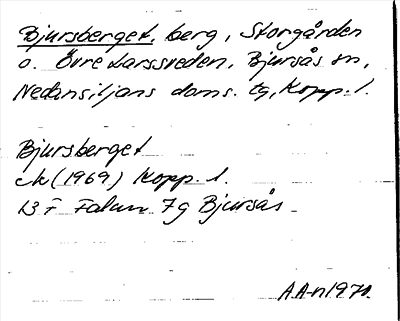 Bjursberget, berg, Storgården
o. Övre Larssveden, Bjursås sn,
Nedansiljans doms. tg, Kopp. l.
Bjursberget
ek (1969) Kopp. l.
13 F Falun 7g Bjursås
AA-n 1970.